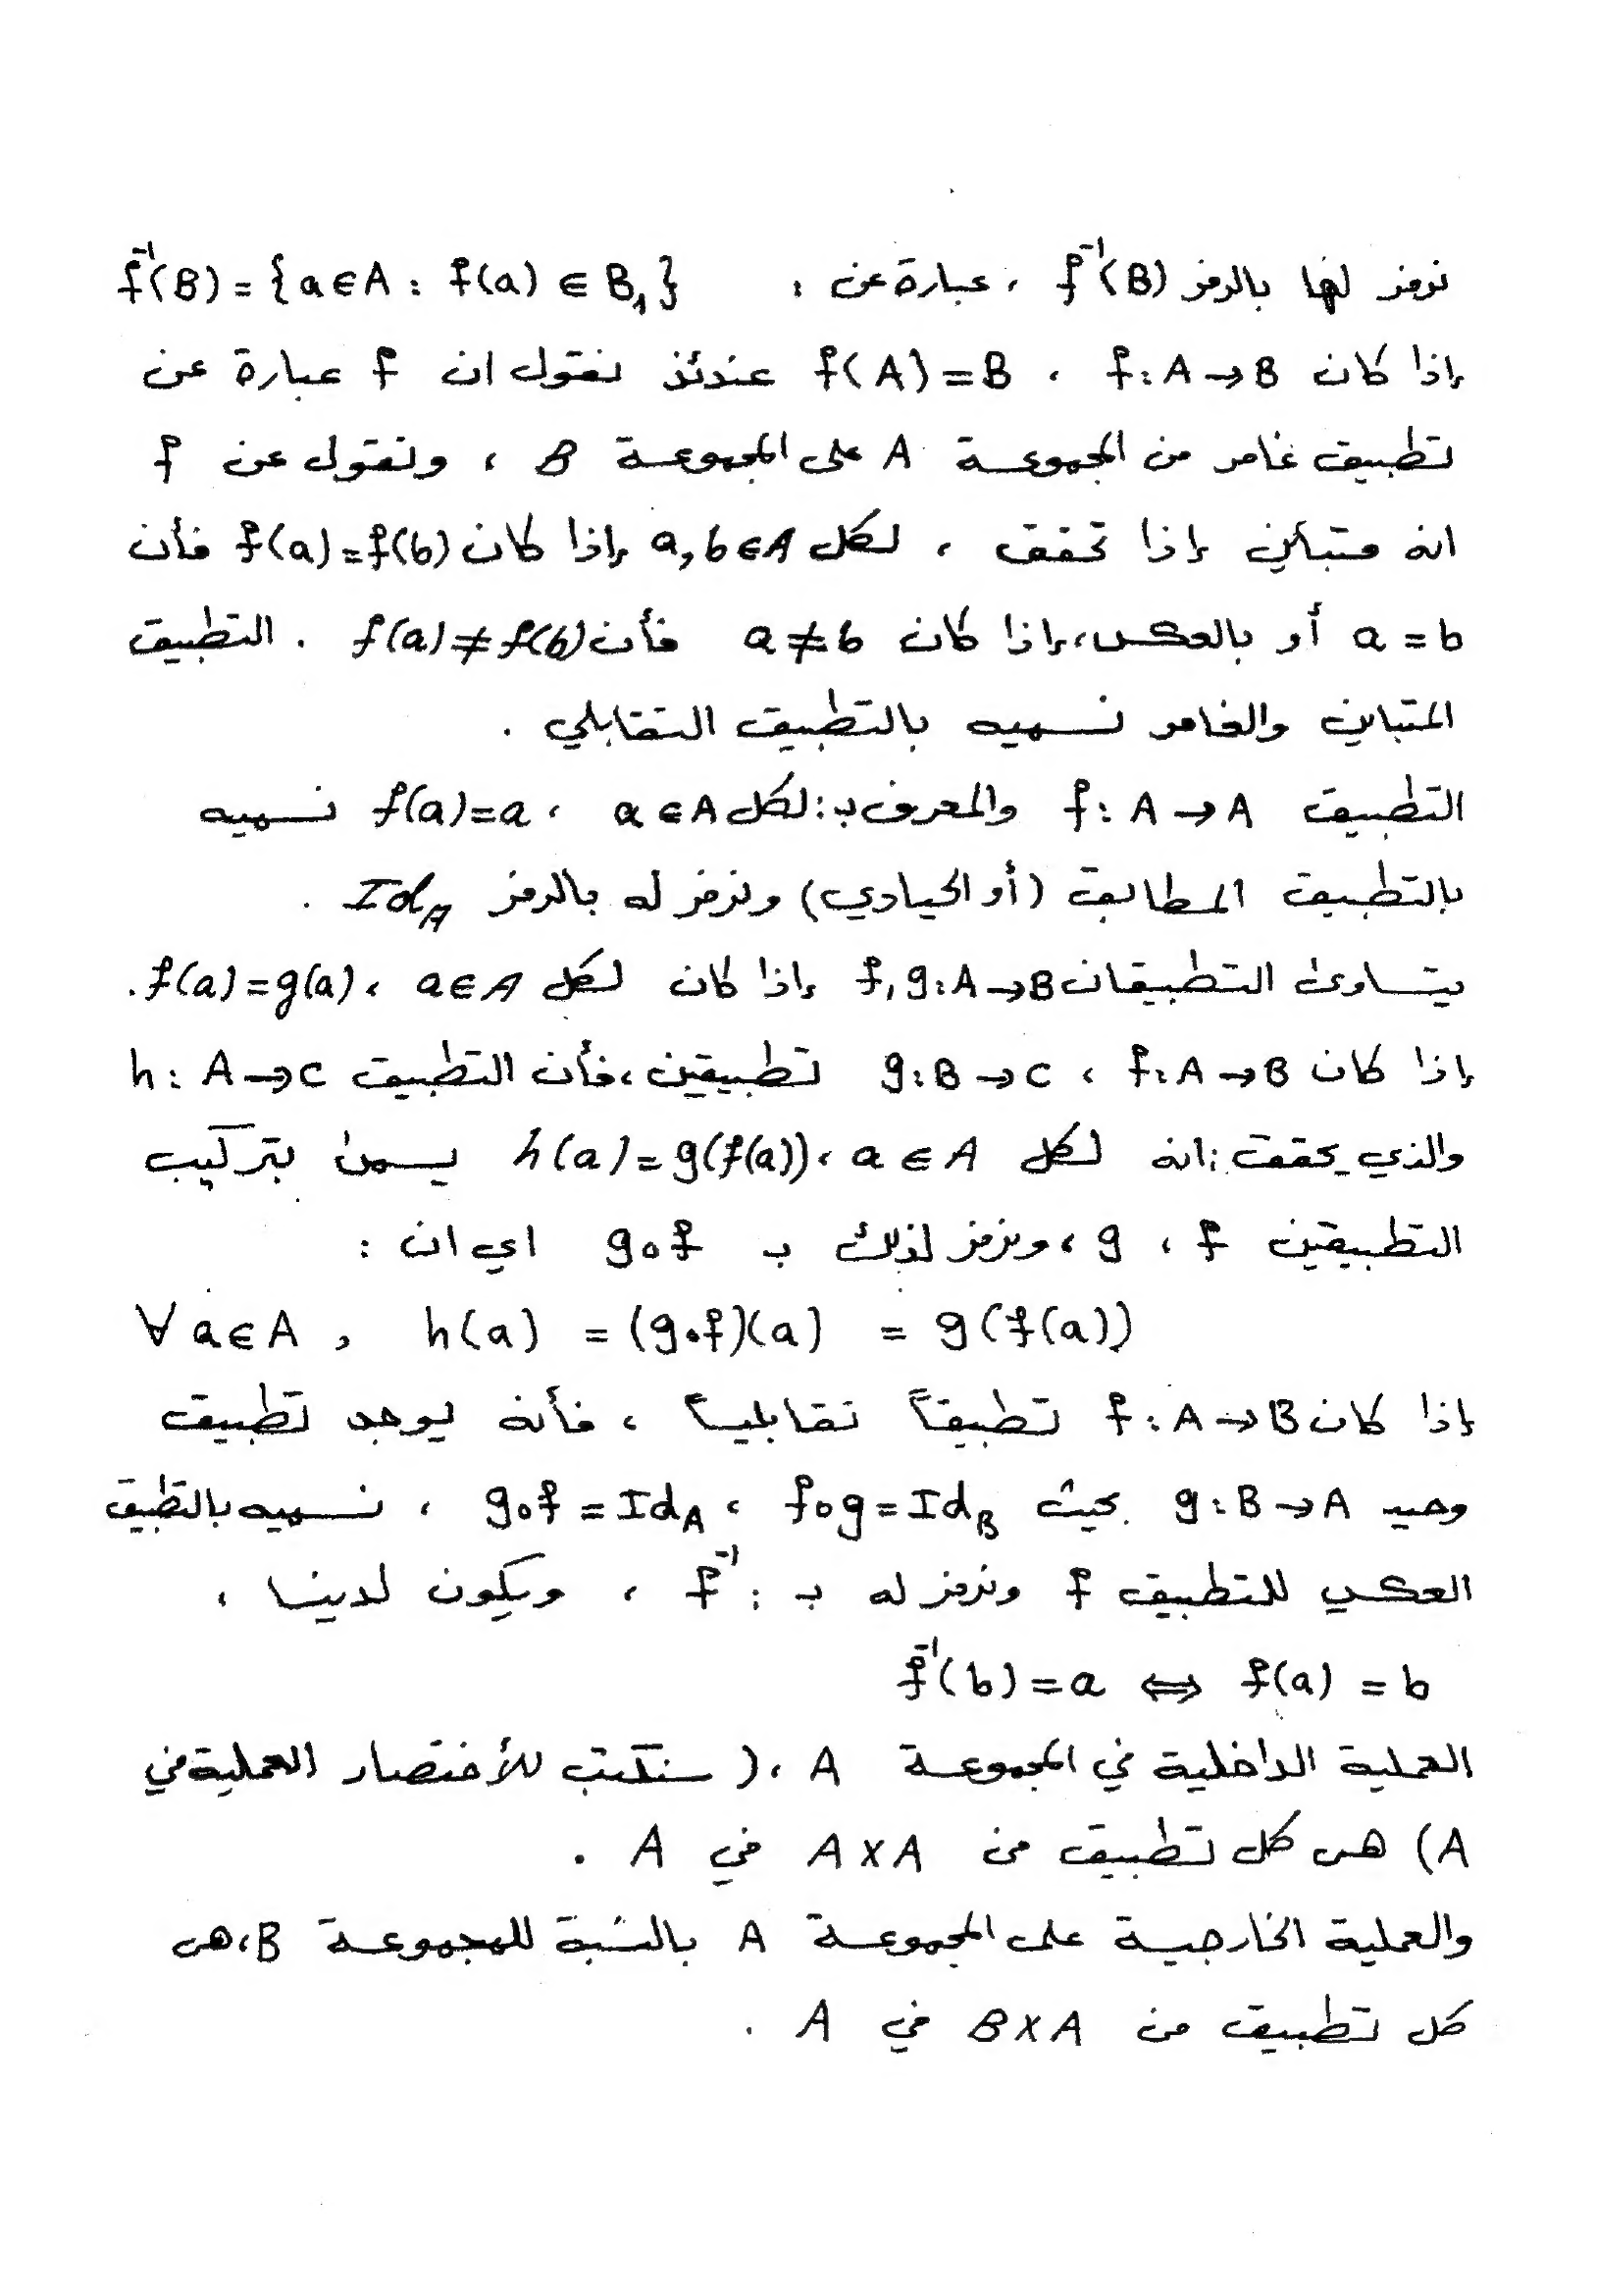 نرمز لها بالرمز f⁻¹(B) ، عبارة عن : f⁻¹(B) = {a∈A : f(a) ∈ B₁}
إذا كان f:A→B ، f(A)=B عندئذ نقول ان f عبارة عن
تطبيق غامر من المجموعة A على المجموعة B ، ونقول عن f
انه متباين إذا تحقق ، لكل a,b∈A إذا كان f(a)=f(b) فأن
a=b أو بالعكس، إذا كان a≠b فأن f(a)≠f(b) . التطبيق
المتباين والغامر نسميه بالتطبيق التقابلي .
التطبيق f:A→A والمعرف بـ: لكل a∈A ، f(a)=a نسميه
بالتطبيق المطابق (أو الحيادي) ونرمز له بالرمز Id_A .
يتساوى التطبيقان f,g:A→B إذا كان لكل a∈A ، f(a)=g(a).
إذا كان f:A→B ، g:B→C تطبيقين، فأن التطبيق h:A→C
والذي يحقق: انه لكل a∈A ، h(a)=g(f(a)) يسمى بتركيب
التطبيقين f ، g ، ونرمز لذلك بـ g∘f اي ان :
∀a∈A , h(a) = (g∘f)(a) = g(f(a))
إذا كان f:A→B تطبيقاً تقابلياً ، فأنه يوجد تطبيق
وحيد g:B→A بحيث f∘g=Id_B ، g∘f=Id_A ، نسميه بالتطبيق
العكسي للتطبيق f ونرمز له بـ : f⁻¹ ، ويكون لدينا ،
f⁻¹(b)=a ⇔ f(a)=b
العملية الداخلية في المجموعة A ،( سنكتب للأختصار العملية في
A) هى كل تطبيق من A×A في A .
والعملية الخارجية على المجموعة A بالنسبة للمجموعة B، هى
كل تطبيق من B×A في A .